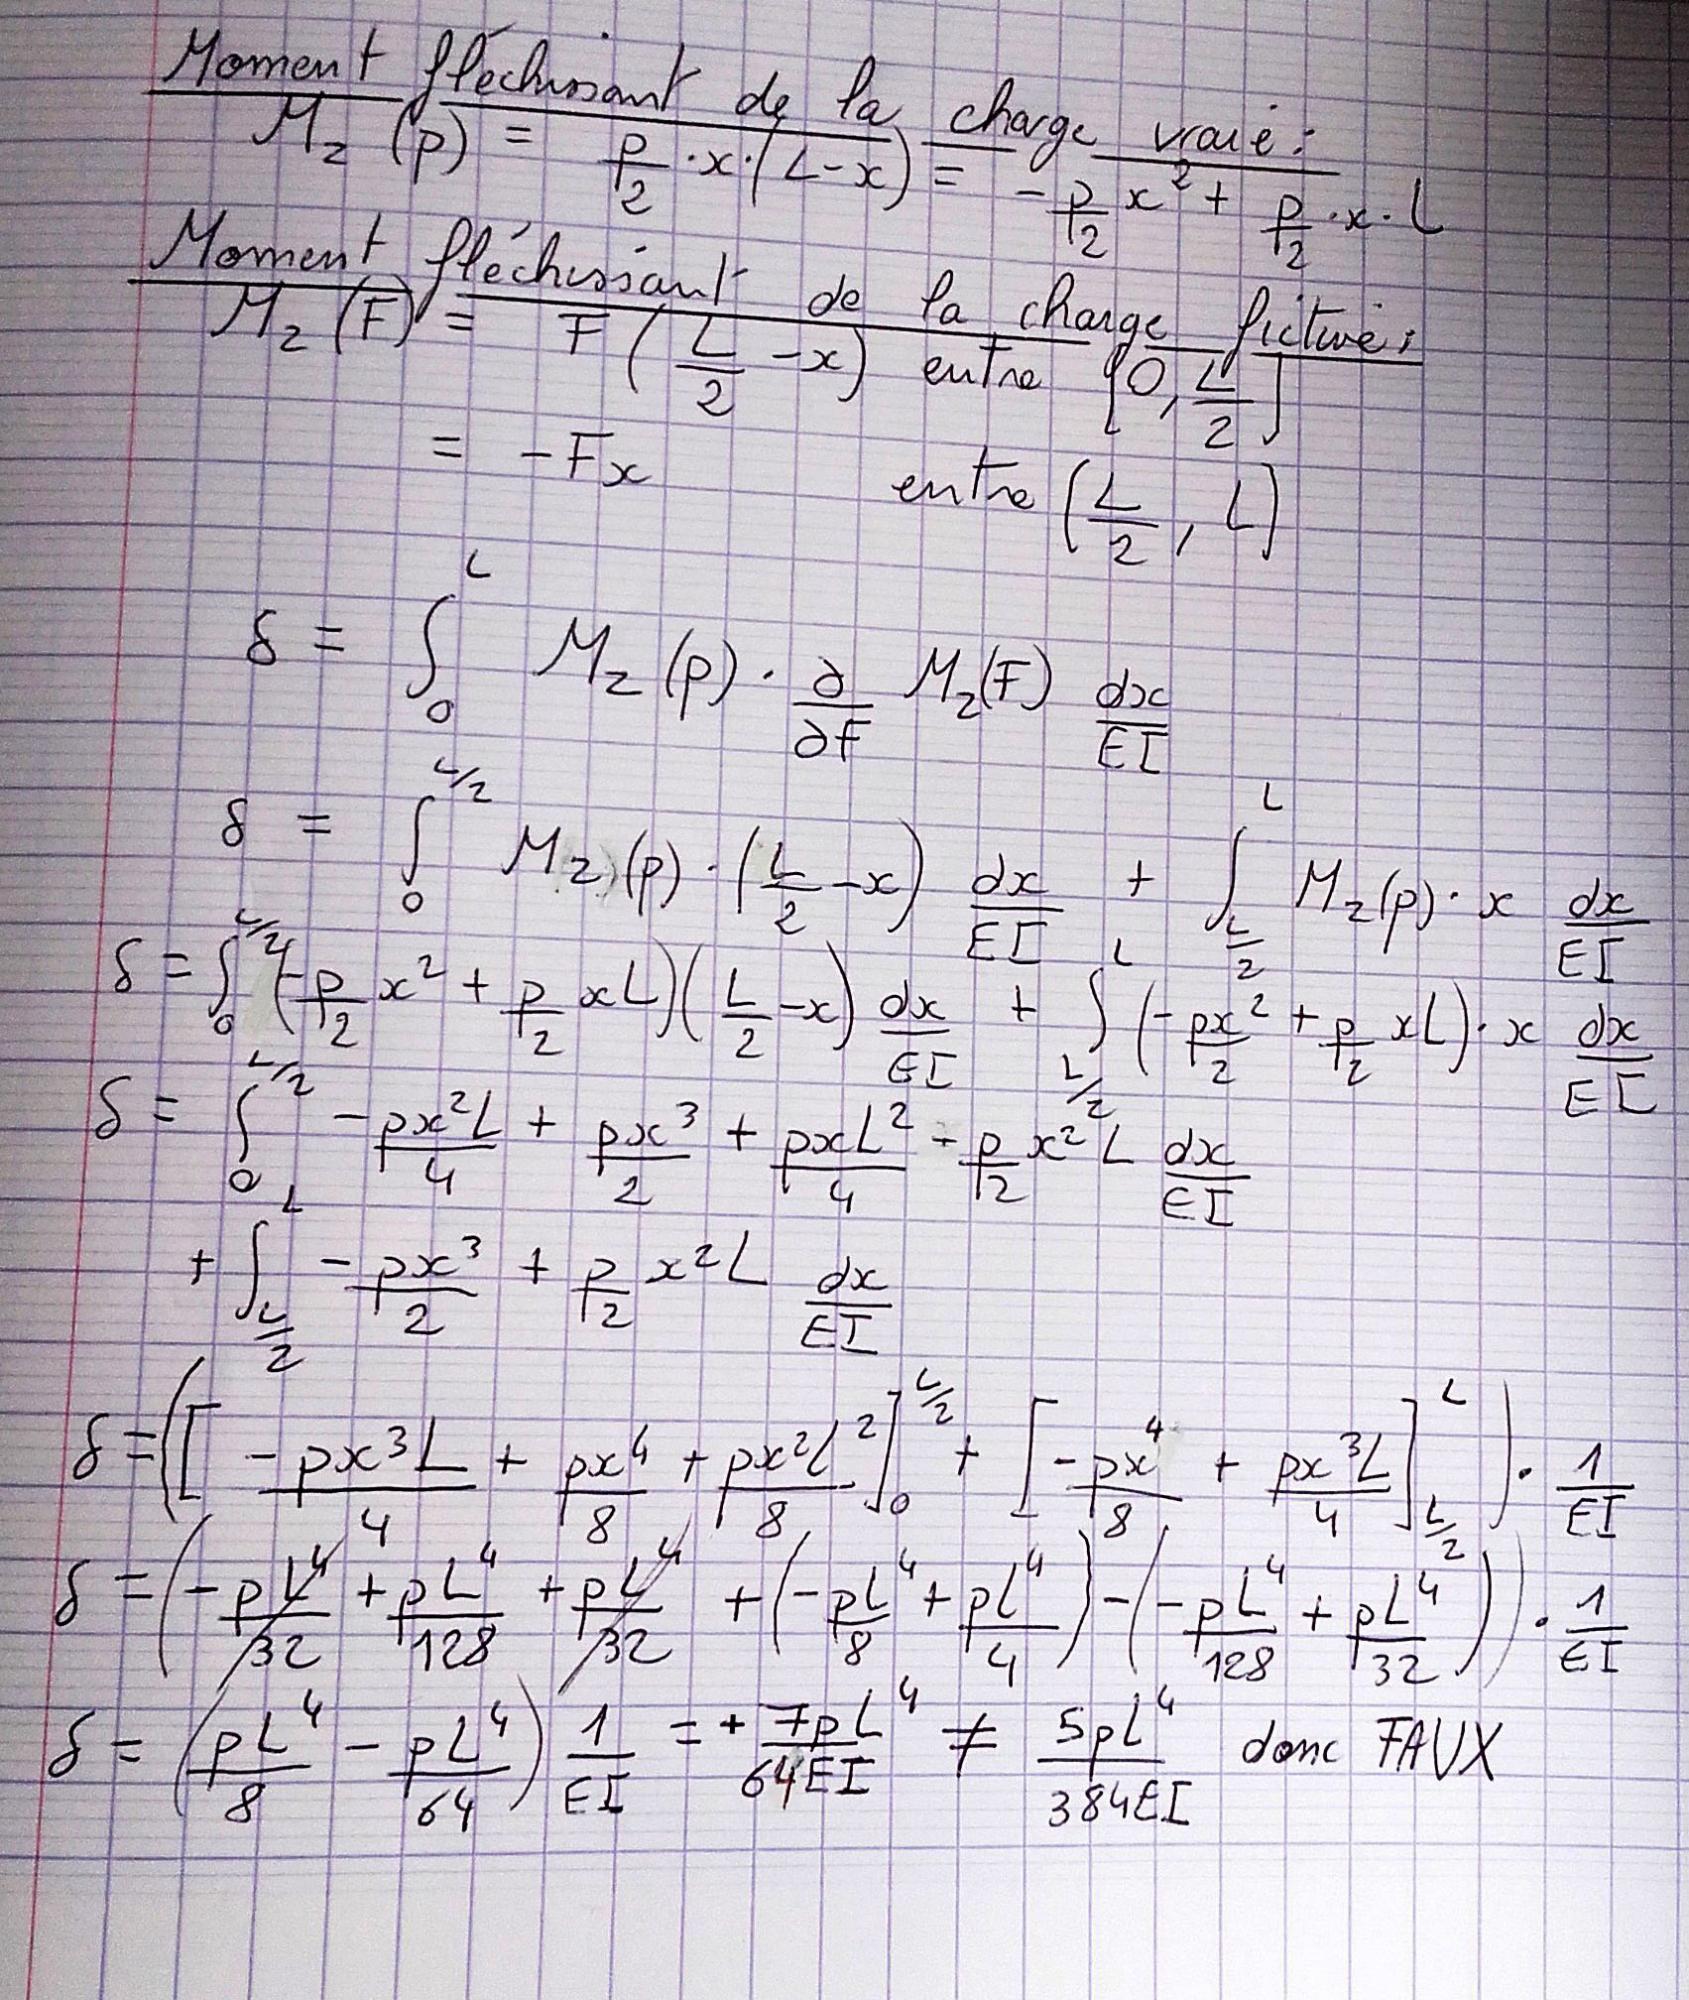 Moment fléchissant de la charge vraie :
M_z (p) = p/2 · x · (L-x) = - p/2 x² + p/2 · x · L
Moment fléchissant de la charge fictive :
M_z (F) = F (L/2 - x) entre [0, L/2]
= - Fx entre (L/2, L]
δ = ∫_0^L M_z (p) · ∂/∂F M_z(F) dx/EI
δ = ∫_0^{L/2} M_z (p) · (L/2 - x) dx/EI + ∫_{L/2}^L M_z (p) · x dx/EI
δ = ∫_0^{L/2} (-p/2 x² + p/2 xL)(L/2 - x) dx/EI + ∫_{L/2}^L (- px²/2 + p/2 xL) · x dx/EI
δ = ∫_0^{L/2} - px²L/4 + px³/2 + pxL²/4 - p/2 x²L dx/EI
+ ∫_{L/2}^L - px³/2 + p/2 x²L dx/EI
δ = ([- px³L/4 + px⁴/8 + px²L²/8]_0^{L/2} + [- px⁴/8 + px³L/4]_{L/2}^L) · 1/EI
δ = (- pL⁴/32 + pL⁴/128 + pL⁴/32 + (- pL⁴/8 + pL⁴/4) - (- pL⁴/128 + pL⁴/32)) · 1/EI
δ = (pL⁴/8 - pL⁴/64) 1/EI = + 7pL⁴/64EI ≠ 5pL⁴/384EI donc FAUX